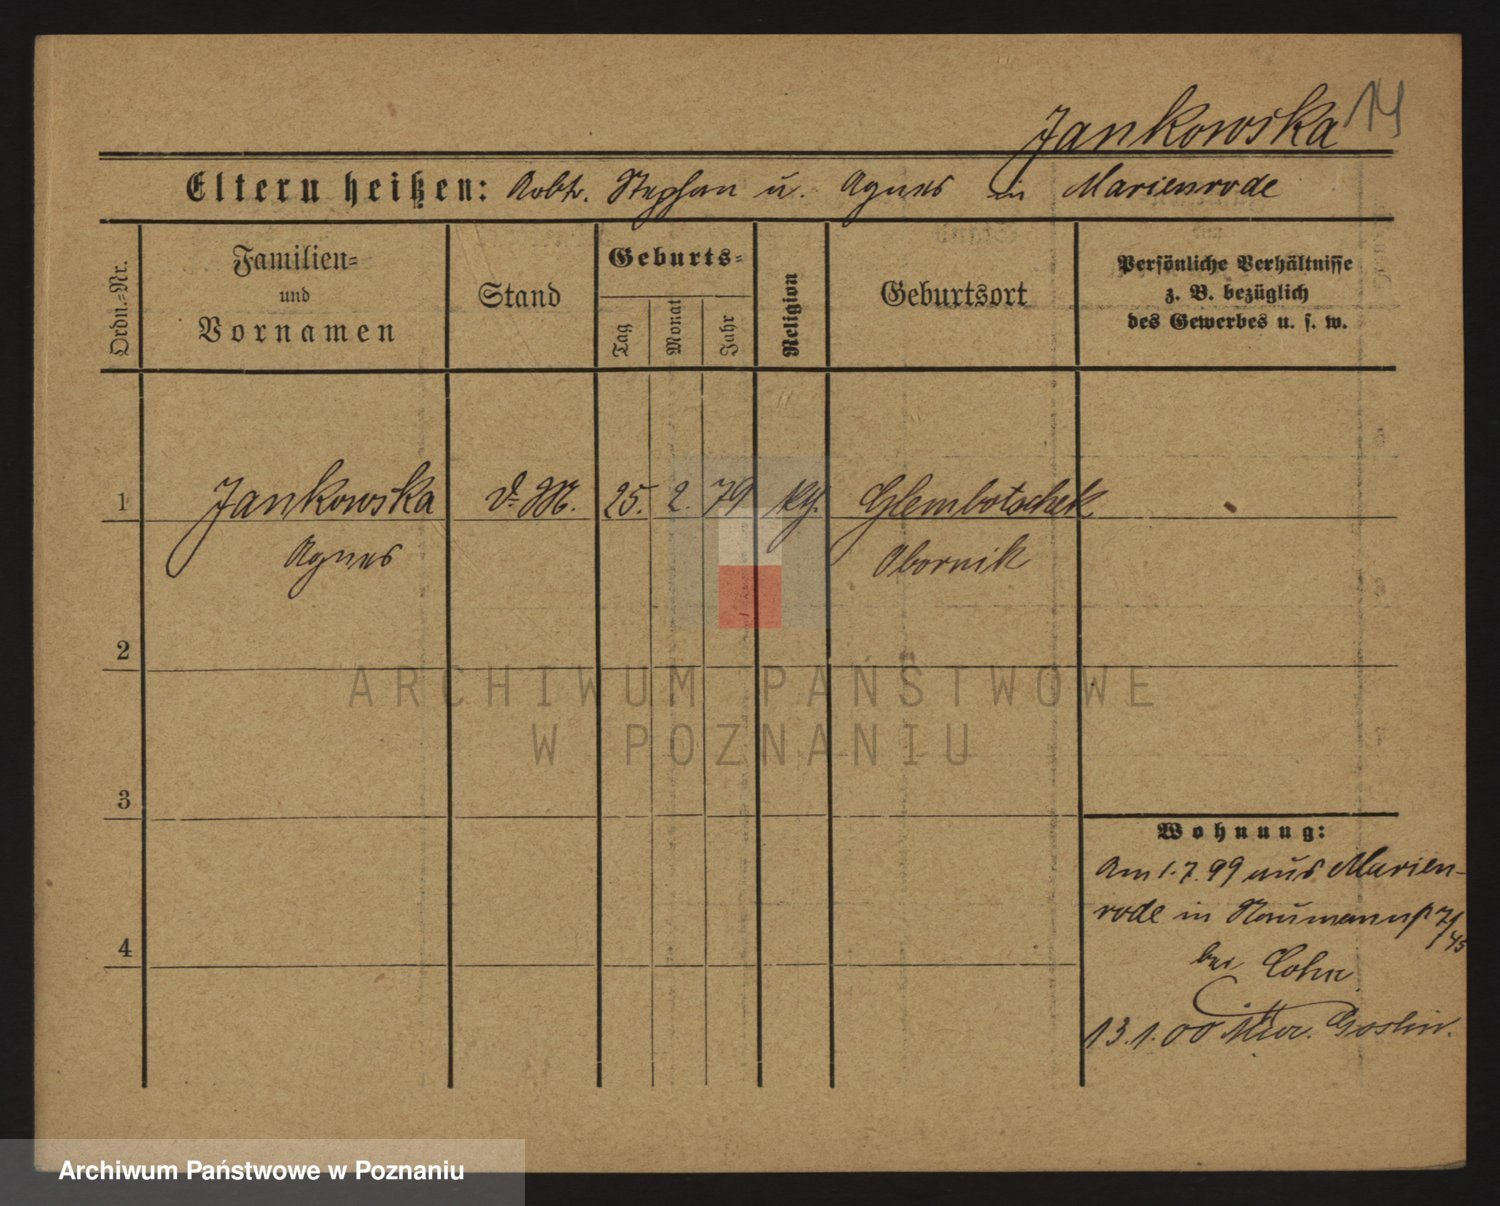 Jankowska 14
Eltern heißen: Arbtr. Stephan u. Agnes in Marienrode
Ordn.=Nr.
Familien=
und
Vornamen
Stand
Geburts=
Tag
Monat
Jahr
Religion
Geburtsort
Persönliche Verhältnisse
z. B. bezüglich
des Gewerbes u. s. w.
1 Jankowska d. M. 25. 2. 79 kth. Glembotschek
Agnes Obornik
2
3
4
Wohnung:
Am 1.7.99 aus Marien-
rode in Naumannstr 7/45
bei Cohn
13.1.00 Mur. Goslin.
ARCHIWUM PAŃSTWOWE
W POZNANIU
Archiwum Państwowe w Poznaniu